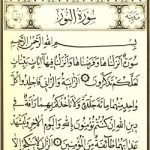 سُورَةُ النُّورِ
بِسْمِ اللَّهِ الرَّحْمَٰنِ الرَّحِيمِ
سُورَةٌ أَنزَلْنَاهَا وَفَرَضْنَاهَا وَأَنزَلْنَا فِيهَا آيَاتٍ بَيِّنَاتٍ
لَّعَلَّكُمْ تَذَكَّرُونَ الزَّانِيَةُ وَالزَّانِي فَاجْلِدُوا كُلَّ
وَاحِدٍ مِّنْهُمَا مِائَةَ جَلْدَةٍ وَلَا تَأْخُذْكُم بِهِمَا رَأْفَةٌ
فِي دِينِ اللَّهِ إِن كُنتُمْ تُؤْمِنُونَ بِاللَّهِ وَالْيَوْمِ الْآخِرِ وَلْيَشْهَدْ
عَذَابَهُمَا طَائِفَةٌ مِّنَ الْمُؤْمِنِينَ الزَّانِي لَا يَنكِحُ إِلَّا